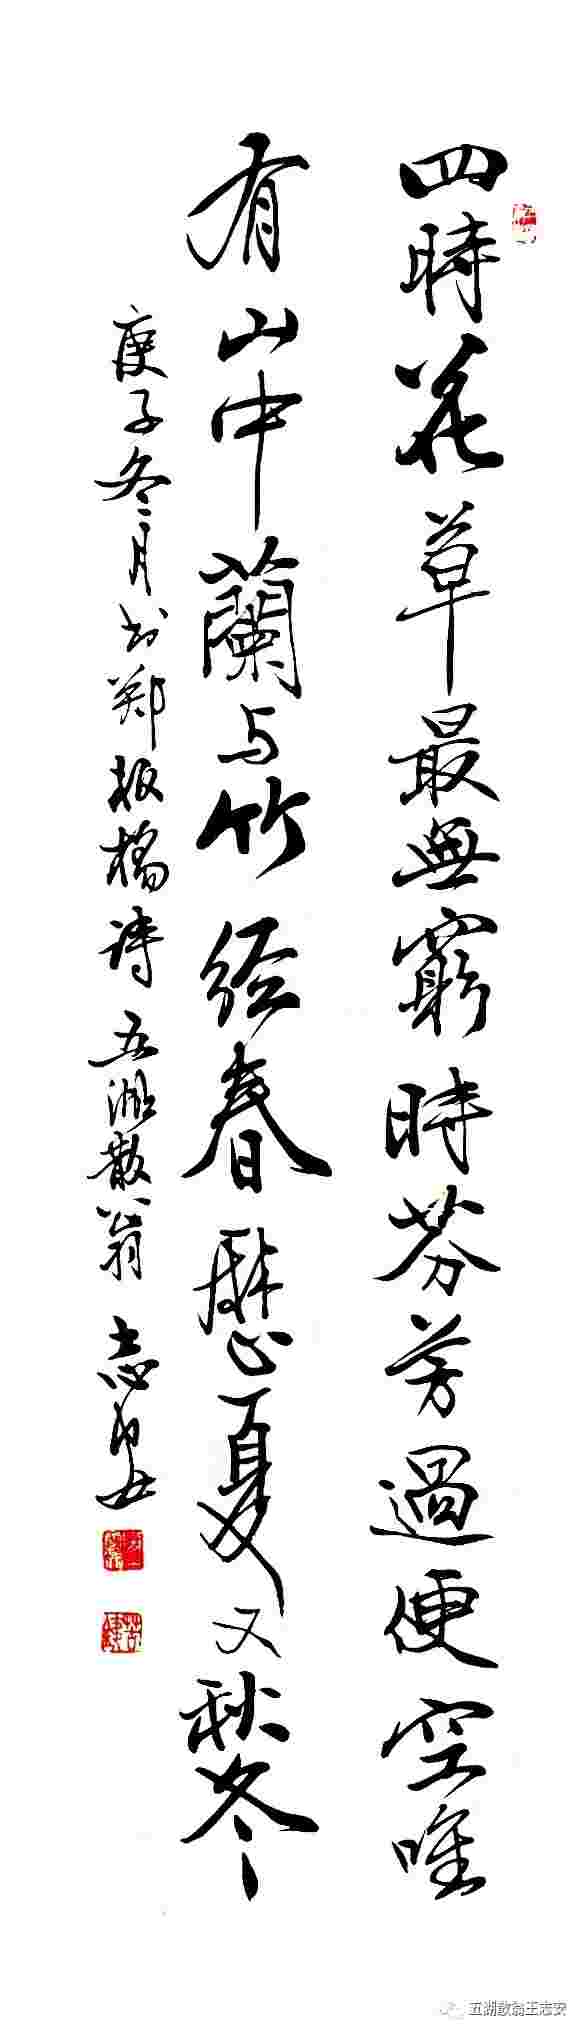 四時花草最無窮時芬芳過便空唯
有山中蘭与竹经春歷夏又秋冬
庚子冬月书郑板橋詩五湖散翁志安
五湖散翁王志安